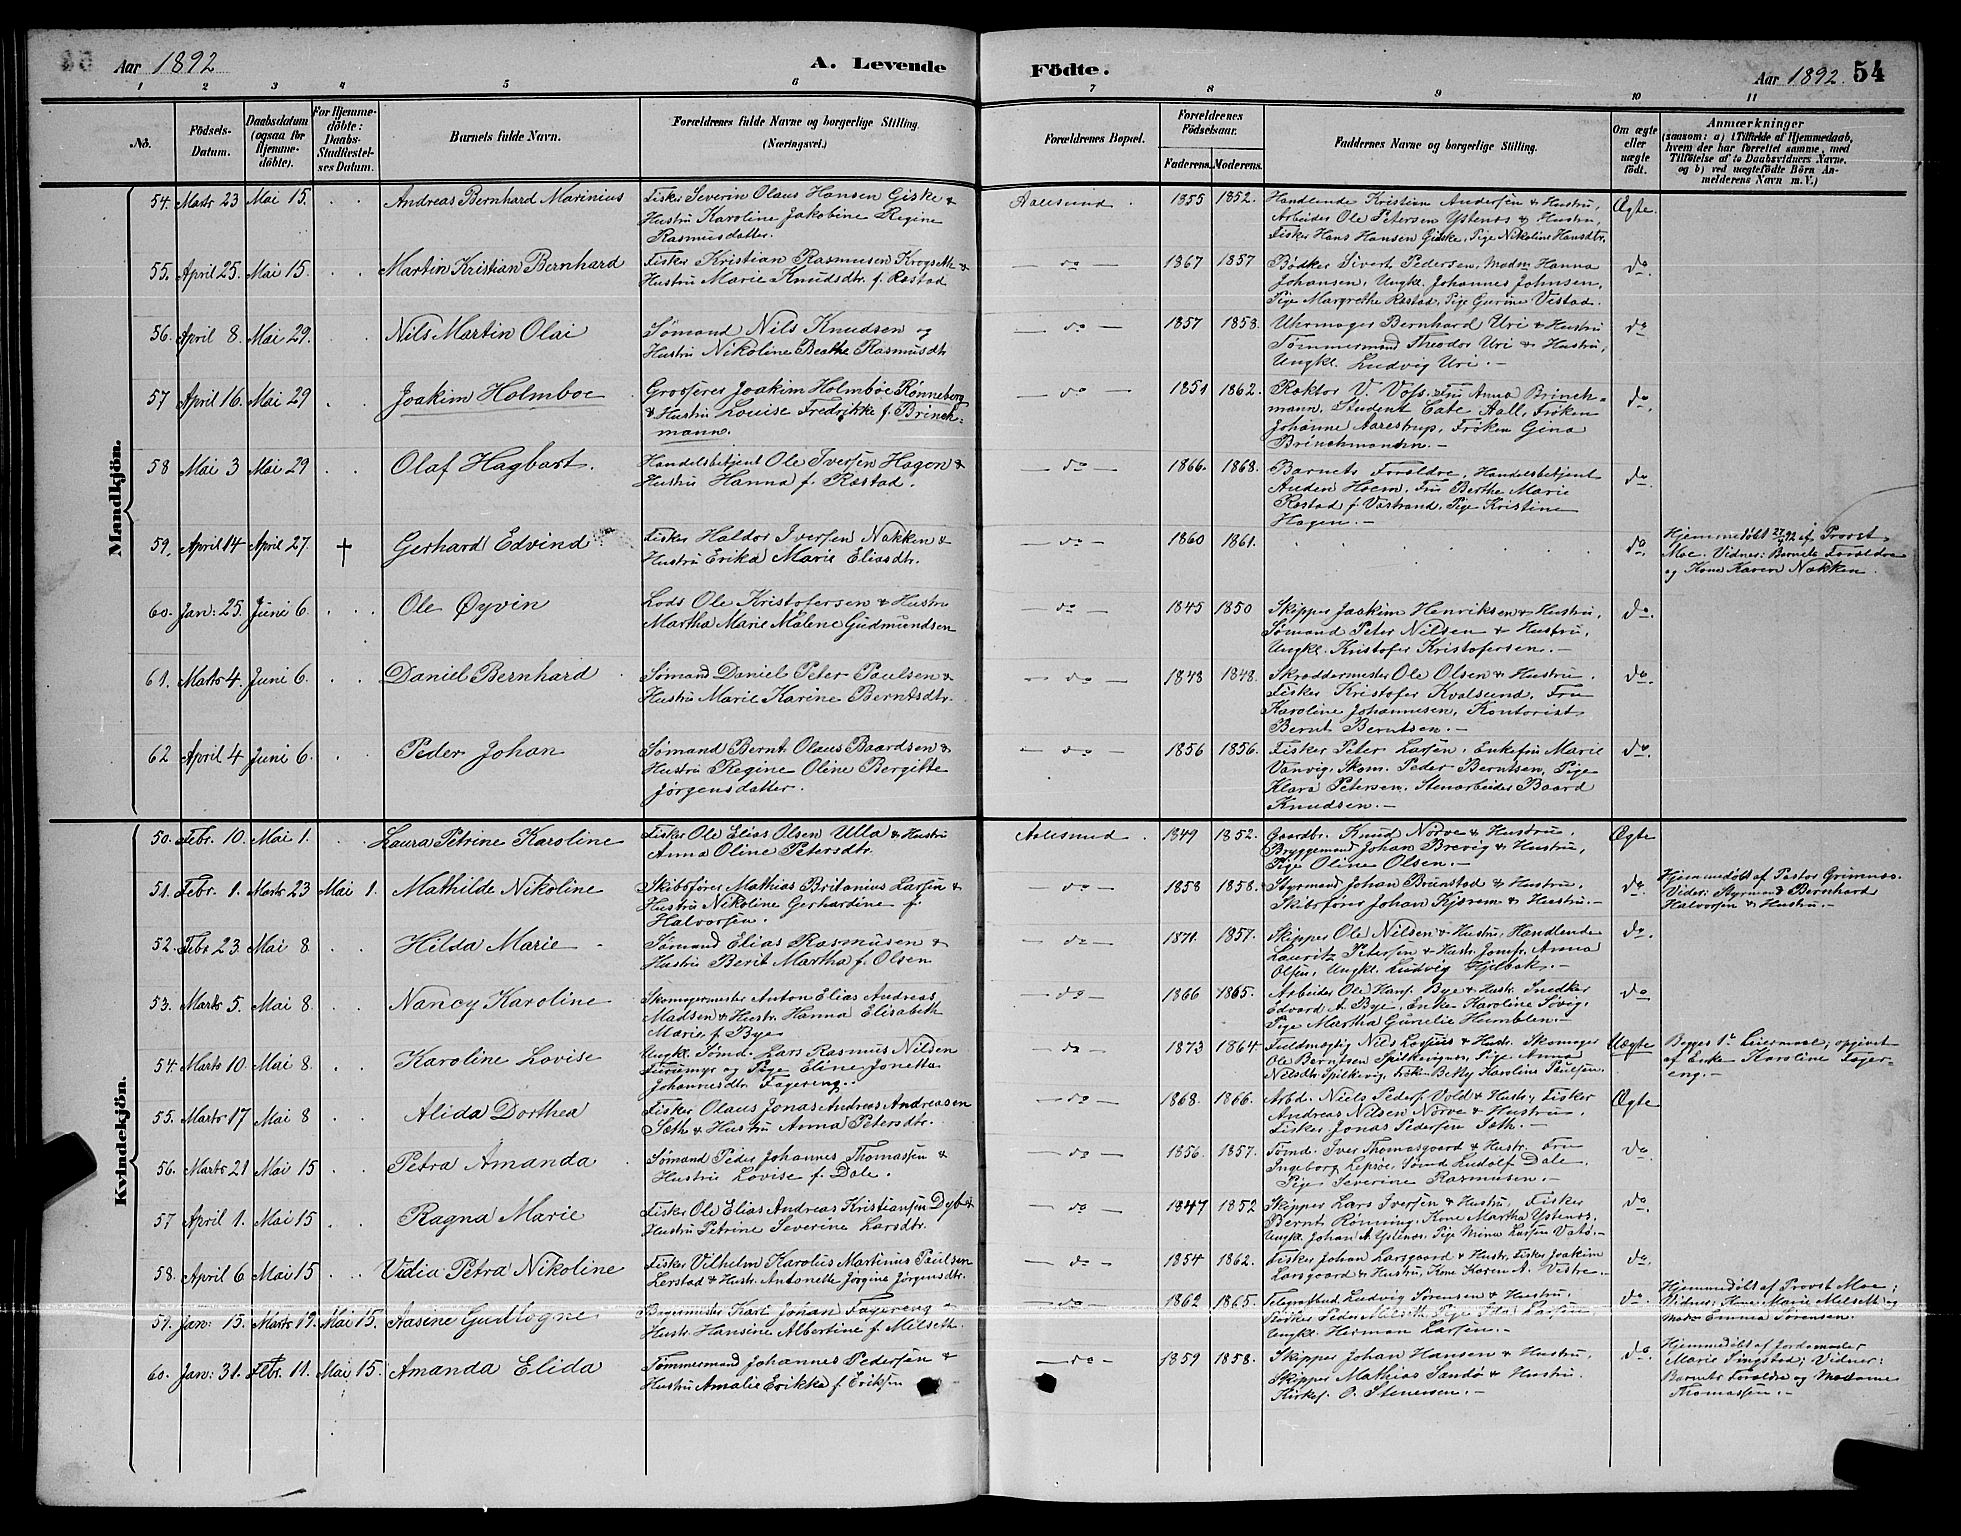 Aar 1892
A. Levende
Födte.
Aar 1892.
54
1 2 3 4 5 6 7 8 9 10 11
No.
Födsels-
Datum.
Daabsdatum
(ogsaa for
Hjemme-
döbte).
For Hjemme-
döbte:
Daabs-
Stadfæstel-
ses Datum.
Barnets fulde Navn.
Forældrenes fulde Navne og borgerlige Stilling.
(Næringsvei.)
Forældrenes Bopæl.
Forældrenes
Födselsaar.
Faderens. Moderens.
Faddernes Navne og borgerlige Stilling.
Om ægte
eller
uægte
födt.
Anmærkninger
(saasom: a) i Tilfælde af Hjemmedaab,
hvem der har forrettet samme, med
Tilföielse af to Daabsvidners Navne,
og b) ved uægtefödte Börn An-
melderens Navn m. V.)
Mandkjön.
54. Marts 23 Mai 15. Andreas Bernhard Marinius
Fisker Severin Olaus Hansen Giske &
Hustru Karoline Jakobine Regine
Rasmusdatter.
Aalesund. 1855 1852.
Handlende Kristian Andersen & Hustru,
Arbeider Ole Petersen Ystenes & Hustru,
Fisker Hans Hansen Giske, Pige Nikoline Hansdtr.
Ægte.
55. April 25. Mai 15. Martin Kristian Bernhard
Fisker Kristian Rasmusen Krogseth &
Hustru Marie Knudsdtr. f. Rostad
do 1867 1857
Bødker Sivert Pedersen, Madm Hanna
Johansen, Ungkl. Johannes Johnsen,
Pige Margrethe Rostad, Pige Gurine Vestad.
do
56. April 8. Mai 29. Nils Martin Olai
Sømand Nils Knudsen og
Hustru Nikoline Beathe Rasmusdtr
do 1857 1858.
Uhrmager Bernhard Uri & Hustru
Tømmermand Theodor Uri & Hustru,
Ungkl. Ludvig Uri.
do
57 April 16. Mai 29 Joakim Holmboe
Grosserer Joakim Holmboe Rønneberg
& Hustru Louise Fredrikke f. Brinch-
mann.
do 1851 1862.
Rektor V. Voss. Fru Anna Brinch-
mann. Student Cate Aall, Frøken
Johanne Aarestrup, Frøken Gina
Brinchmann.
do.
58 Mai 3 Mai 29 Olaf Hagbart.
Handelsbetjent Ole Iversen Hagen &
Hustru Hanna f. Rostad.
do 1866. 1868.
Barnets Forældre, Handelsbetjent
Anden Hoem. Fru Berthe Marie
Rostad f. Vastrand, Pige Kristine
Hagen.
do.
59. April 14 April 27. † Gerhard Edvind
Fisker Haldor Iversen Nakken &
Hustru Erika Marie Eliasdtr.
do 1860 1861.
do
Hjemmedøbt 27/4 92 af Provst
Moe. Vidner: Barnets Forældre
og Kone Karen Nakken.
60. Jan: 25. Juni 6. Ole Øyvin
Lods Ole Kristofersen & Hustru
Martha Marie Malene Gudmundsen
do 1845 1850
Skipper Joakim Henriksen & Hustru,
Sømand Peter Nilsen & Hustru,
Ungkl. Kristofer Kristofersen.
do.
61. Marts 4. Juni 6. Daniel Bernhard
Sømand Daniel Peter Paulsen &
Hustru Marie Karine Berntsdtr.
do 1848 1848.
Skræddermester Ole Olsen & Hustru.
Fisker Kristofer Kvalsund, Fru
Karoline Johannesen, Kontorist
Bernt Berntsen.
do.
62 April 4 Juni 6. Peder Johan
Sømand Bernt Olaus Baardsen &
Hustru Regine Oline Bergitte
Jørgensdatter.
do 1856 1856.
Fisker Peter Larsen, Enkefru Marie
Vanvig, Skom. Peder Berntsen, Pige
Klara Petersen. Stenarbeider Baard
Knudsen.
do
Kvindekjön.
50. Febr. 10. Mai 1. Laura Petrine Karoline
Fisker Ole Elias Olsen Ulla & Hustru
Anna Oline Petersdtr.
Aalesund. 1849 1852.
Gaardbr. Knud Nørve & Hustru,
Bryggemand Johan Brevig & Hustru,
Pige Oline Olsen.
Ægte
51. Febr. 1. Marts 23 Mai 1. Mathilde Nikoline
Skibsfører Mathias Britanius Larsen &
Hustru Nikoline Gerhardine f.
Halvorsen.
do 1858 1858.
Styrmand Johan Brunstad & Hustru.
Skibsfører Johan Kjærem & Hustru.
do.
Hjemmedøbt af Pastor Grimnes.
Vidner: Styrmand Bernhard
Halvorsen & Hustru.
52. Febr 23 Mai 8. Hilda Marie
Sømand Elias Rasmusen &
Hustru Berit Martha f. Olsen
do 1871. 1857.
Skipper Ole Nilsen & Hustru, Handlende
Lauritz Petersen & Hustr. Jomfr. Anna
Olsen, Ungkl. Ludvig Hjelbak.
do.
53. Marts 5. Mai 8. Nancy Karoline
Skomagermester Anton Elias Andreas
Madsen & Hustr. Hanna Elisabeth
Marie f. Bye
do 1866 1865.
Arbeider Ole Hans. Bye & Hustr. Snedker
Edvard A. Bye, Enke Karoline Søvig,
Pige Martha Gurelie Humblen.
do
54 Marts 10 Mai 8. Karoline Lovise
Ungkl. Sømd. Lars Rasmus Nilsen
Furumyr og Pige Eline Jonetta
Johannesdtr Fagereng.
do 1873 1864
Fuldmægtig Nils Lorsius & Hustr. Skomager
Ole Berntsen Spilkevignes, Pige Anna
Nilsdtr Spilkevig, Frøken Betty Karolius Paulsen.
Uægte
Begges 1ste Leiermaal; opgivet
af Enke Karoline Fager-
eng.
55. Marts 17 Mai 8 Alida Dorthea
Fisker Olaus Jonas Andreas Andreasen
Sæth & Hustru Anna Petersdtr.
do 1868. 1866.
Arbd. Niels Peders. Vold & Hustr., Fisker
Andreas Nilsen Nørve & Hustru.
Fisker Jonas Pedersen Sæth.
Ægte
56. Marts 21 Mai 15 Petra Amanda
Sømand Peder Johannes Thomassen &
Hustru Lovise f. Dale.
do 1856. 1857.
Tømd. Iver Thomasgaard & Hustr. Fru
Ingeborg Lepsøe, Sømd Ludolf Dale,
Pige Severine Rasmusen.
do
57 April 1. Mai 15 Ragna Marie
Fisker Ole Elias Andreas Kristiansen Dyb &
Hustru Petrine Severine Larsdtr.
do 1847 1852
Skipper Lars Iversen & Hustru, Fisker
Bernt Rønning, Kone Martha Ystenes,
Ungkl. Johan A. Ystenes, Pige Mina Larsen Vatø.
do.
58. April 6 Mai 15 Vidia Petra Nikoline
Fisker Vilhelm Karolus Martinus Paulsen
Lerstad & Hustr. Antonette Jørgine Jørgensdtr.
do 1854 1862.
Fisker Johan Larsgaard & Hustr. Fisker Joakim
Larsgaard & Hustru, Kone Karen A. Vestre.
do
59. Jan: 15. Marts 19. Mai 15. Aasine Gudtogne
Bagermester Karl Johan Fagereng &
Hustr. Hansine Albertine f. Melseth.
do 1862 1865.
Telegrafbud Ludvig Sørensen & Hustru,
Ungkl. Herman Larsen.
do.
Hjemmedøbt af Provst Moe;
Vidner: Kone Marie Melseth og
Mad. Emma Sørensen.
60. Jan: 31. Febr. 11. Mai 15. Amanda Elida
Tømmermand Johannes Pedersen &
Hustru Amalie Erikka f. Eriksen
do 1859 1858.
Skipper Johan Hansen & Hustru,
Skipper Mathias Sandø & Hustru.
Kirkes. O. Stenersen.
do
Hjemmedøbt af Jordemoder
Marie Singstad; Vidner:
Barnets Forældre og Madame
Thomassen.